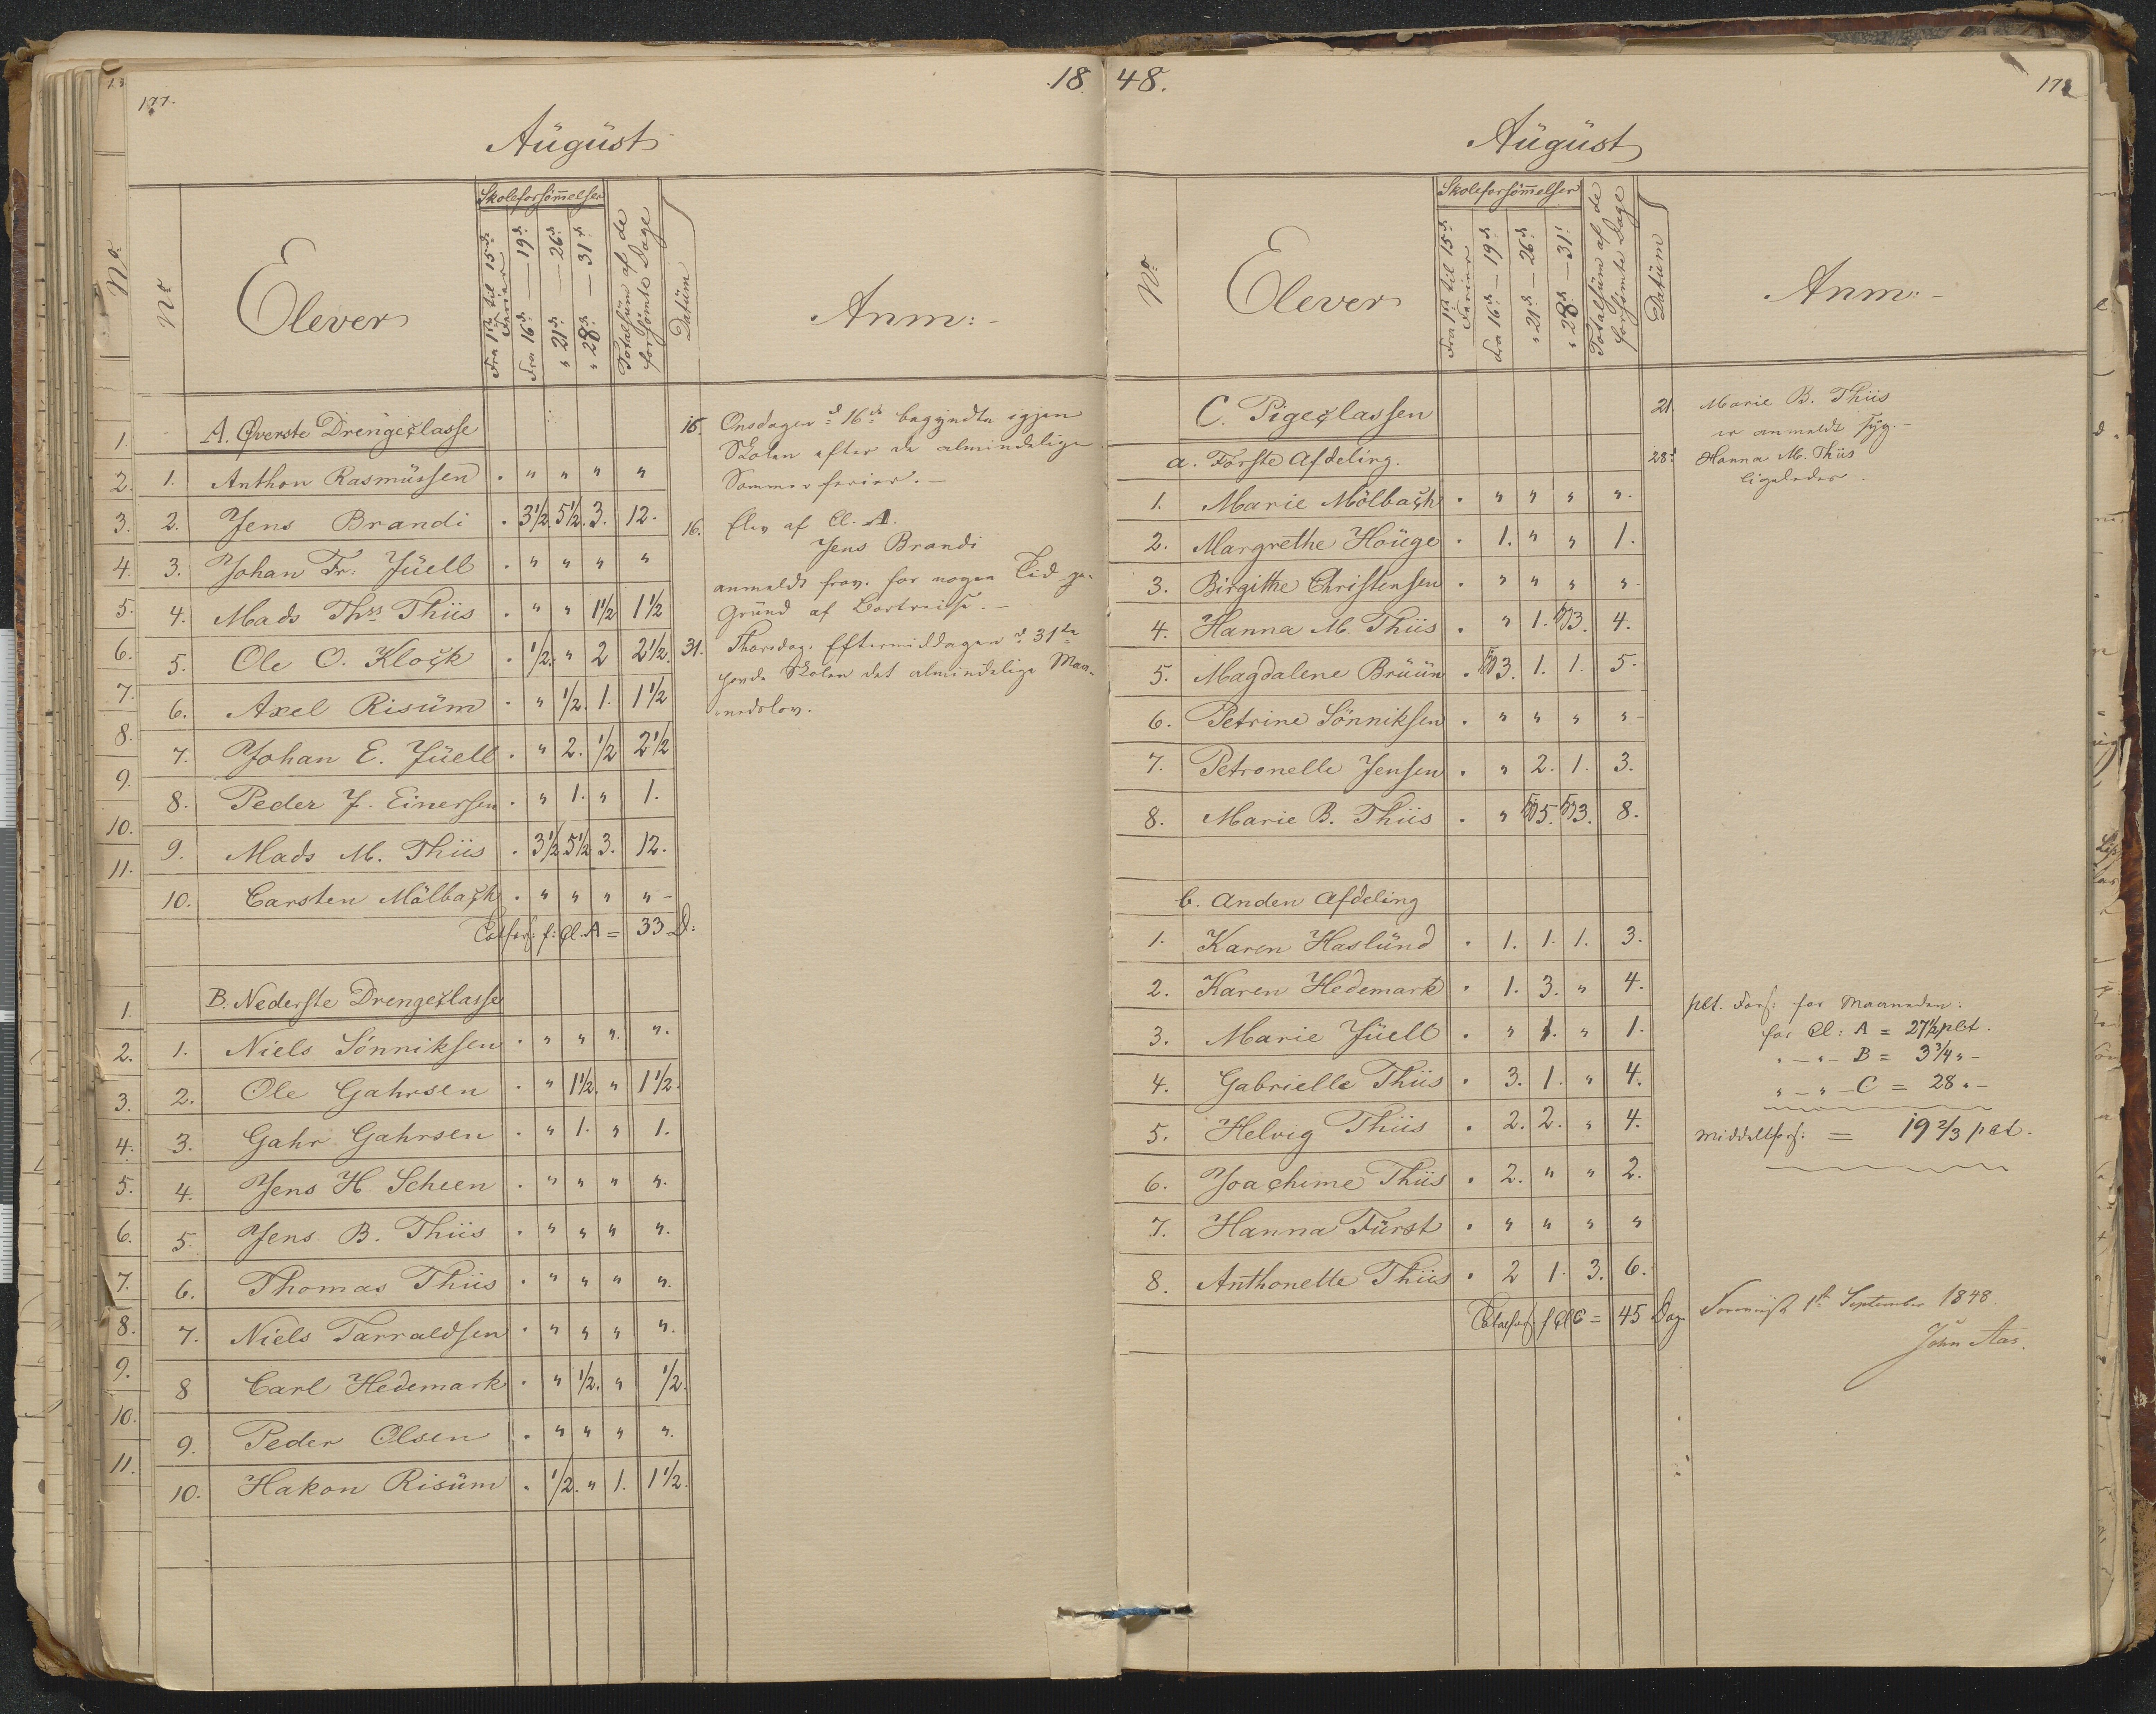 177.
18
August
No
Nr
Elever
Skoleforsömelser
Fra 1ste til 15de Ferier
Fra 16de — 19de
" 21de — 26de
" 28de — 31te
Totalsüm af de forsömte Dage
Datüm
Anm:
A. Øverste Drengeclasse
1. Anthon Rasmüssen . " " " "
2. Jens Brandi . 3½. 5½. 3. 12.
3. Johan Fr: Jüell . " " " "
4. Mads Ths Thiis . " " 1½ 1½
5. Ole O. Klock . ½. " 2 2½.
6. Axel Risüm . " ½. 1. 1½
7. Johan E. Jüell . " 2. ½ 2½
8. Peder J. Einersen . " 1. " 1.
9. Mads M. Thiis . 3½ 5½ 3. 12.
10. Carsten Mölbach . " " " "
Totfors: f: Cl. A = 33 D:
B. Nederste Drengeclasse
1. Niels Sönniksen . " " " ".
2. Ole Gahrsen . " 1½. " 1½.
3. Gahr Gahrsen . " 1. " 1.
4. Jens H. Scheen . " " " ".
5. Jens B. Thiis . " " " ".
6. Thomas Thiis . " " " ".
7. Niels Tarraldsen . " " " ".
8 Carl Hedemark . " ½. " ½.
9. Peder Olsen . " " " ".
10. Hakon Risüm . ½. " 1. 1½.
15. Onsdagen d 16de begyndte igjen
Skolen efter de almindelige
Sommerferier. –
16. Elev af Cl. A.
Jens Brandi
anmeldt frav. for nogen Tid
Gründ af Bortreise. –
31. Thorsdag Eftermiddagen d 31te
havde Skolen det almindelige Maa-
nedslov.
48.
178
August
Nr
Elever
Skoleforsömelser
Fra 1ste til 15de Ferier
Fra 16de — 19de
" 21de — 26de
" 28de — 31!
Totalsüm af de forsömte Dage
Datüm
Anm:
C. Pigeclassen
a. Förste Afdeling.
1. Marie Mölbach . " " " ".
2. Margrethe Houge . 1. " " 1.
3. Birgithe Christensen . " " " "
4. Hanna M. Thiis . " 1. 3. 4.
5. Magdalene Brüün . 3. 1. 1. 5.
6. Petrine Sönniksen . " " " "
7. Petronelle Jensen . " 2. 1. 3.
8. Marie B. Thiis . " 5. 3. 8.
b. Anden Afdeling
1. Karen Haslünd . 1. 1. 1. 3.
2. Karen Hedemark . 1. 3. " 4.
3. Marie Jüell . " 1. " 1.
4. Gabrielle Thiis . 3. 1. " 4.
5. Helvig Thiis . 2. 2. " 4.
6. Joachime Thiis . 2. " " 2.
7. Hanna Fürst . " " " "
8. Anthonette Thiis . 2 1. 3. 6.
Totalfors: f Cl C = 45 Dag
21. Marie B. Thiis
er anmeldt syg. –
28de Hanna M. Thiis
ligeledes.
pct. Fors: for Maaneden:
for Cl: A = 27½ pct.
" – " – B = 3¾ " –
" – " – C = 28 " –
Middelfors: = 19⅔ pct.
1ste September 1848.
John Aas.